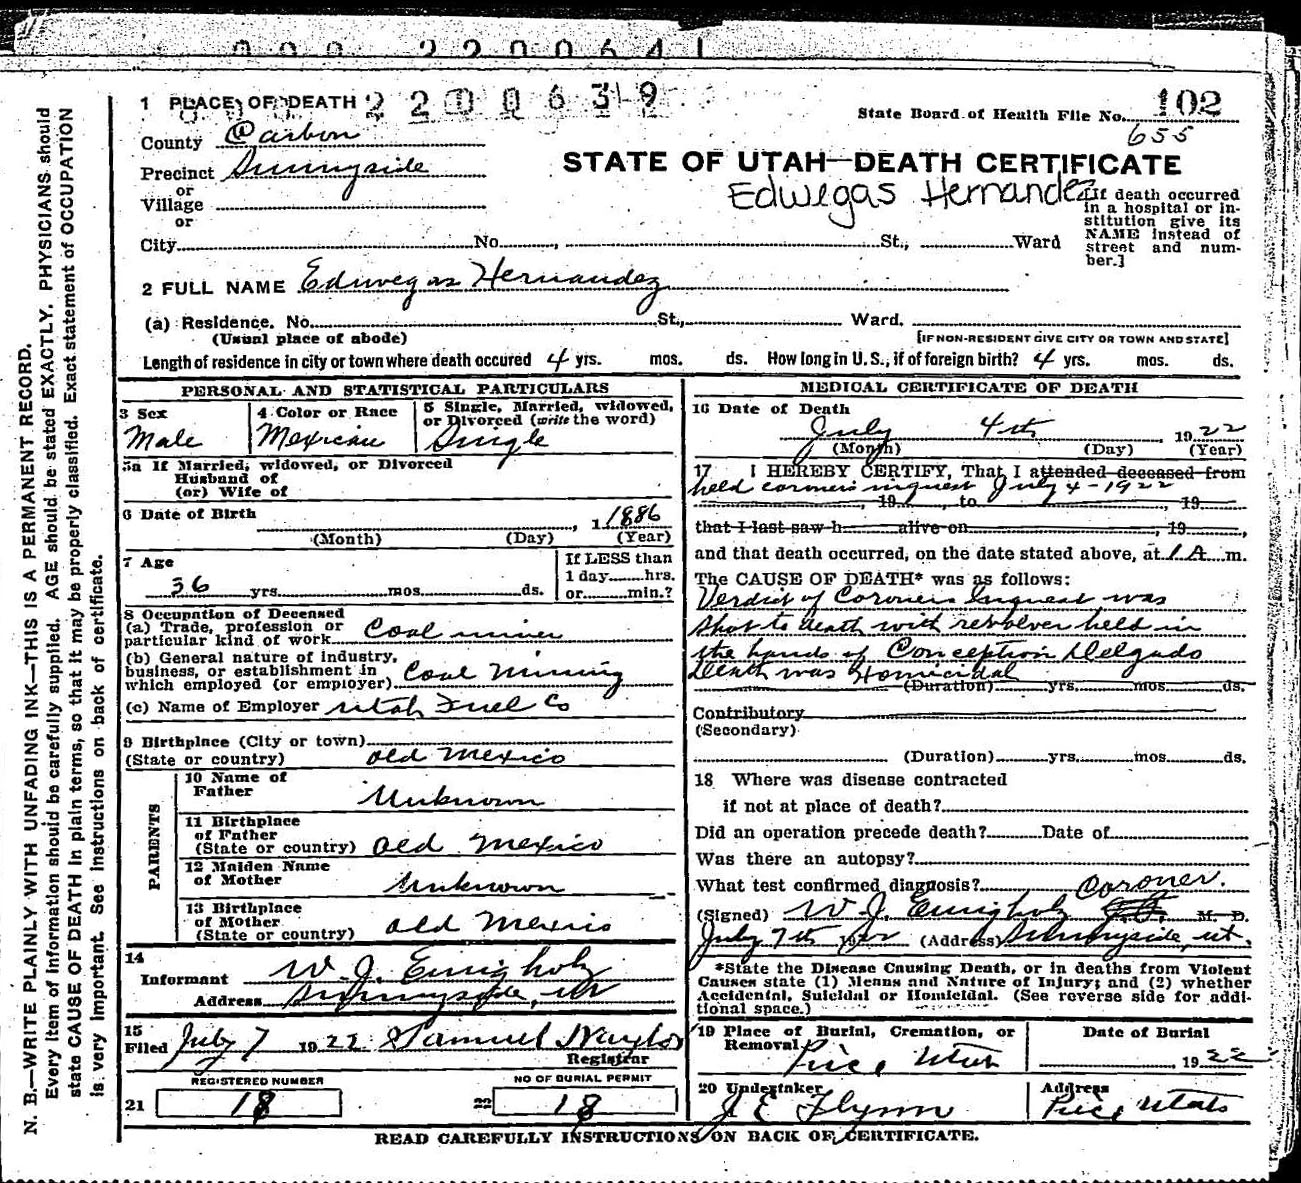 000 2200641
1 PLACE OF DEATH 2200639
State Board of Health File No. 102
655
County Carbon
Precinct Sunnyside
STATE OF UTAH—DEATH CERTIFICATE
or
Village
or
Edwegas Hernandez
[If death occurred in a hospital or institution give its NAME instead of street and number.]
City No. , St., Ward
2 FULL NAME Edwegas Hernandez
(a) Residence. No. St., Ward.
(Usual place of abode) [IF NON-RESIDENT GIVE CITY OR TOWN AND STATE]
Length of residence in city or town where death occured 4 yrs. mos. ds. How long in U. S., if of foreign birth? 4 yrs. mos. ds.
PERSONAL AND STATISTICAL PARTICULARS
3 Sex
Male
4 Color or Race
Mexican
5 Single, Married, widowed, or Divorced (write the word)
Single
5a If Married, widowed, or Divorced
Husband of
(or) Wife of
6 Date of Birth , 1 1886
(Month) (Day) (Year)
7 Age
36 yrs. mos. ds.
If LESS than
1 day hrs.
or min.?
8 Occupation of Deceased
(a) Trade, profession or
particular kind of work Coal miner
(b) General nature of industry,
business, or establishment in
which employed (or employer) Coal Mining
(c) Name of Employer Utah Fuel Co
9 Birthplace (City or town)
(State or country) Old Mexico
PARENTS
10 Name of
Father Unknown
11 Birthplace
of Father
(State or country) Old Mexico
12 Maiden Name
of Mother Unknown
13 Birthplace
of Mother
(State or country) Old Mexico
14
Informant W. J. Emigholz
Address Sunnyside, Ut
15
Filed July 7 1922 Samuel Naylor
Registrar
REGISTERED NUMBER
21 18
NO OF BURIAL PERMIT
22 18
MEDICAL CERTIFICATE OF DEATH
16 Date of Death
July 4th 1922
(Month) (Day) (Year)
17 I HEREBY CERTIFY, That I attended deceased from
held coroners inquest July 4-1922
, 19 , to , 19
that I last saw h alive on , 19
and that death occurred, on the date stated above, at 1 A m.
The CAUSE OF DEATH* was as follows:
Verdict of Coroners Inquest was
shot to death with revolver held in
the hands of Conception Delgado
Death was Homicidal
(Duration) yrs. mos. ds.
Contributory
(Secondary)
(Duration) yrs. mos. ds.
18 Where was disease contracted
if not at place of death?
Did an operation precede death? Date of
Was there an autopsy?
What test confirmed diagnosis? Coroner.
(Signed) W. J. Emigholz M. D.
July 7th 1922 (Address) Sunnyside, Ut.
*State the Disease Causing Death, or in deaths from Violent
Causes state (1) Means and Nature of Injury; and (2) whether
Accidental, Suicidal or Homicidal. (See reverse side for additional space.)
19 Place of Burial, Cremation, or
Removal
Price Utah
Date of Burial
1922
20 Undertaker
J E Flynn
Address
Price Utah
READ CAREFULLY INSTRUCTIONS ON BACK OF CERTIFICATE.
N. B.—WRITE PLAINLY WITH UNFADING INK—THIS IS A PERMANENT RECORD.
Every item of information should be carefully supplied. AGE should be stated EXACTLY. PHYSICIANS should
state CAUSE OF DEATH in plain terms, so that it may be properly classified. Exact statement of OCCUPATION
is very important. See instructions on back of certificate.